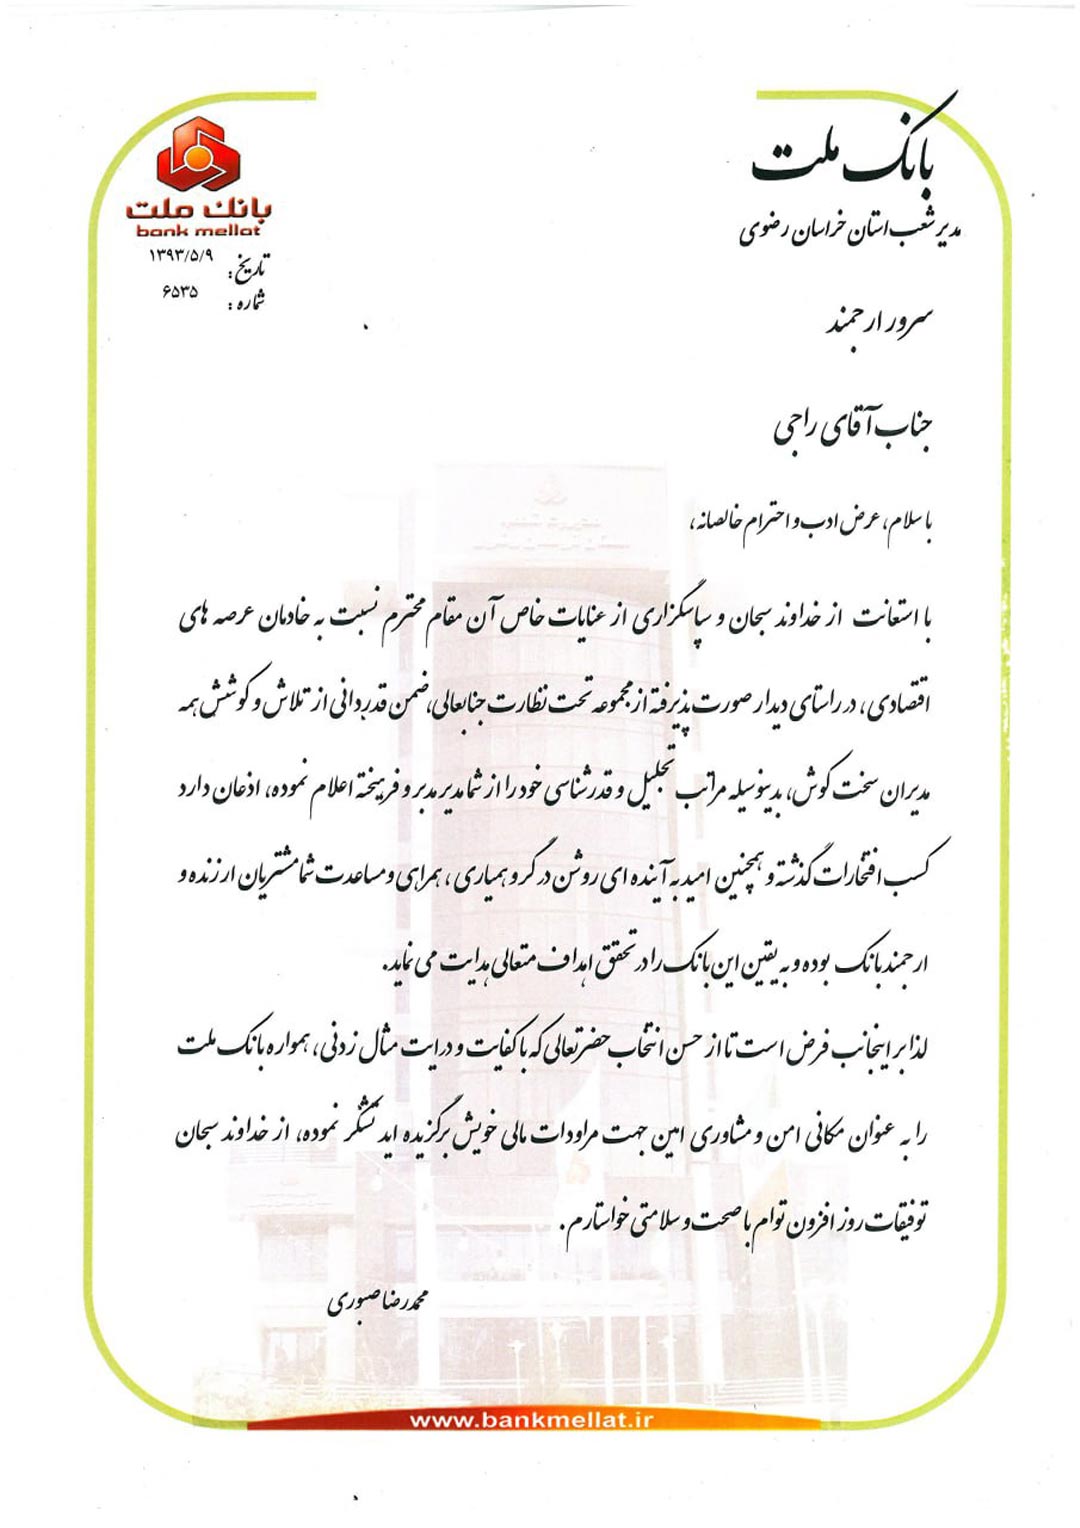 بانک ملت
مدیر شعب استان خراسان رضوی
بانک ملت
bank mellat
تاریخ : ۱۳۹۳/۵/۹
شماره : ۶۵۳۵
سرور ارجمند
جناب آقای راجی
با سلام، عرض ادب و احترام خالصانه،
با استعانت از خداوند سبحان و سپاسگزاری از عنایات خاص آن مقام محترم نسبت به خادمان عرصه های
اقتصادی، در راستای دیدار صورت پذیرفته از مجموعه تحت نظارت جنابعالی، ضمن قدردانی از تلاش و کوشش همه
مدیران سخت کوش، بدینوسیله مراتب تجلیل و قدرشناسی خود را از شما مدیر مدبر و فرهیخته اعلام نموده، اذعان دارد
کسب افتخارات گذشته و همچنین امید به آینده ای روشن در گرو همیاری، همراهی و مساعدت شما مشتریان ارزنده و
ارجمند بانک بوده و به یقین این بانک را در تحقق اهداف متعالی هدایت می نماید.
لذا بر اینجانب فرض است تا از حسن انتخاب حضرتعالی که با کفایت و درایت مثال زدنی، همواره بانک ملت
را به عنوان مکانی امن و مشاوری امین جهت مراودات مالی خویش برگزیده اید تشکر نموده، از خداوند سبحان
توفیقات روز افزون توام با صحت و سلامتی خواستارم.
محمدرضا صبوری
www.bankmellat.ir